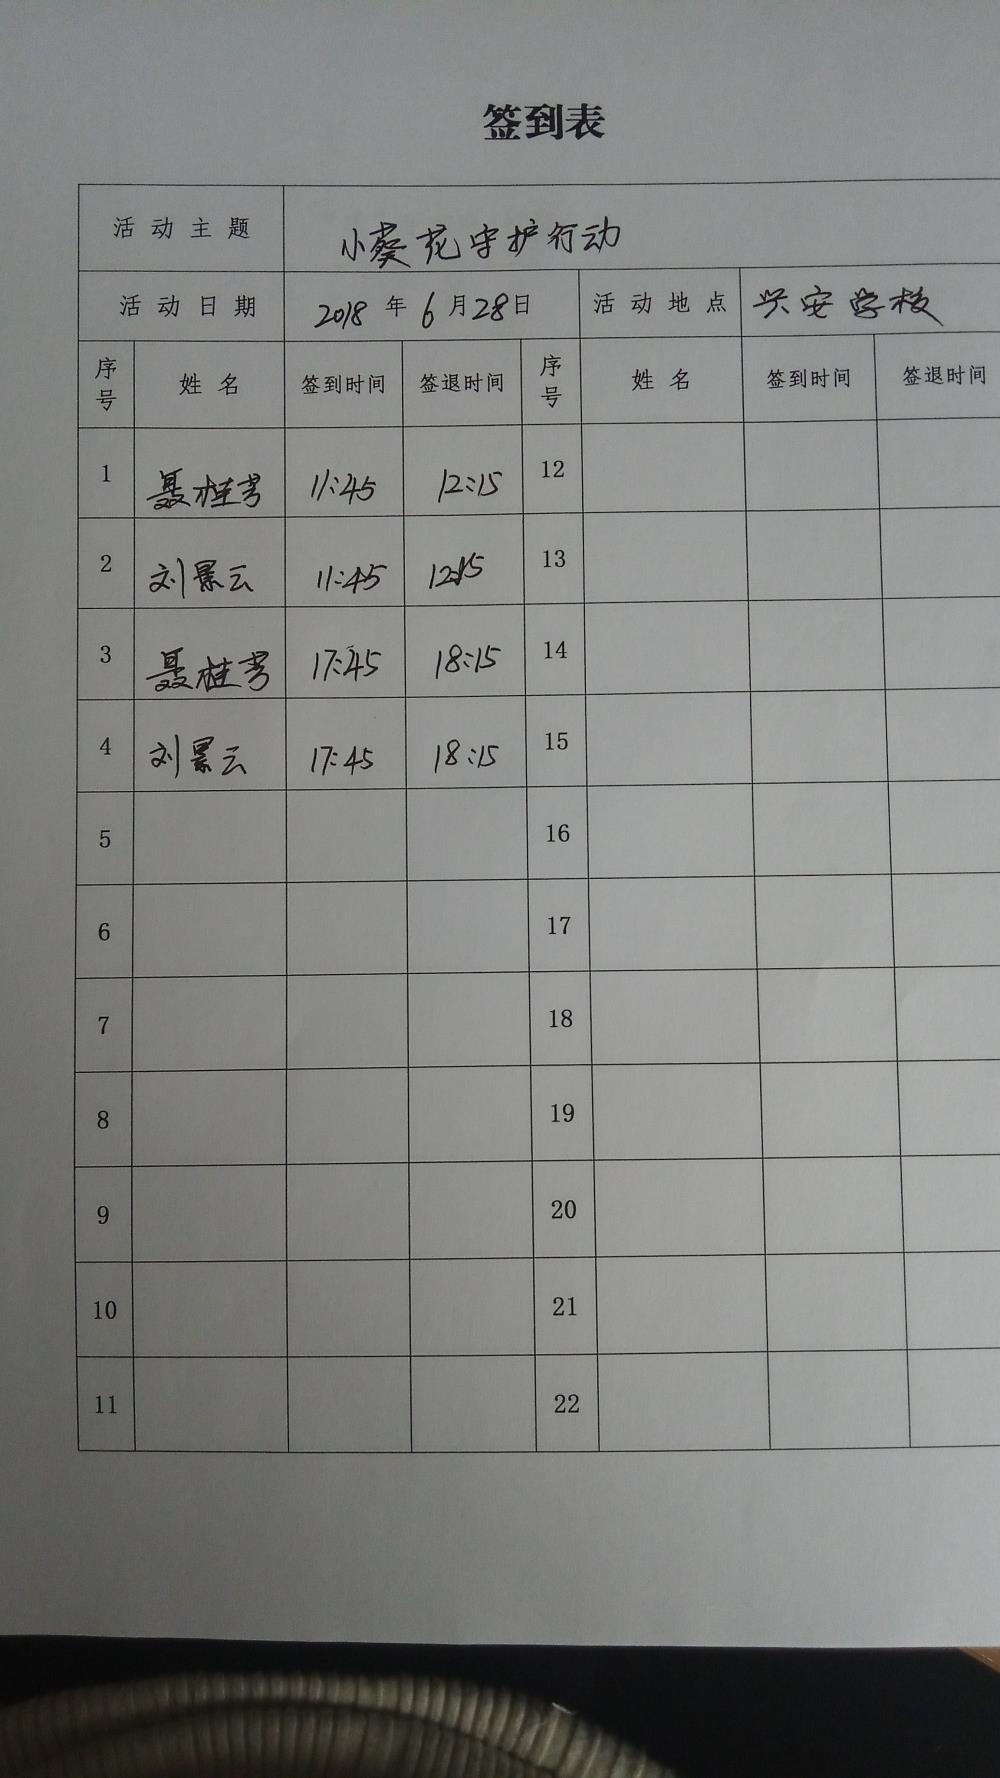 签到表
活动主题 小葵花守护行动
活动日期 2018年6月28日 活动地点 兴安学校
序号 姓名 签到时间 签退时间 序号 姓名 签到时间 签退时间
1 聂桂芳 11:45 12:15 12
2 刘景云 11:45 12:15 13
3 聂桂芳 17:45 18:15 14
4 刘景云 17:45 18:15 15
5 16
6 17
7 18
8 19
9 20
10 21
11 22